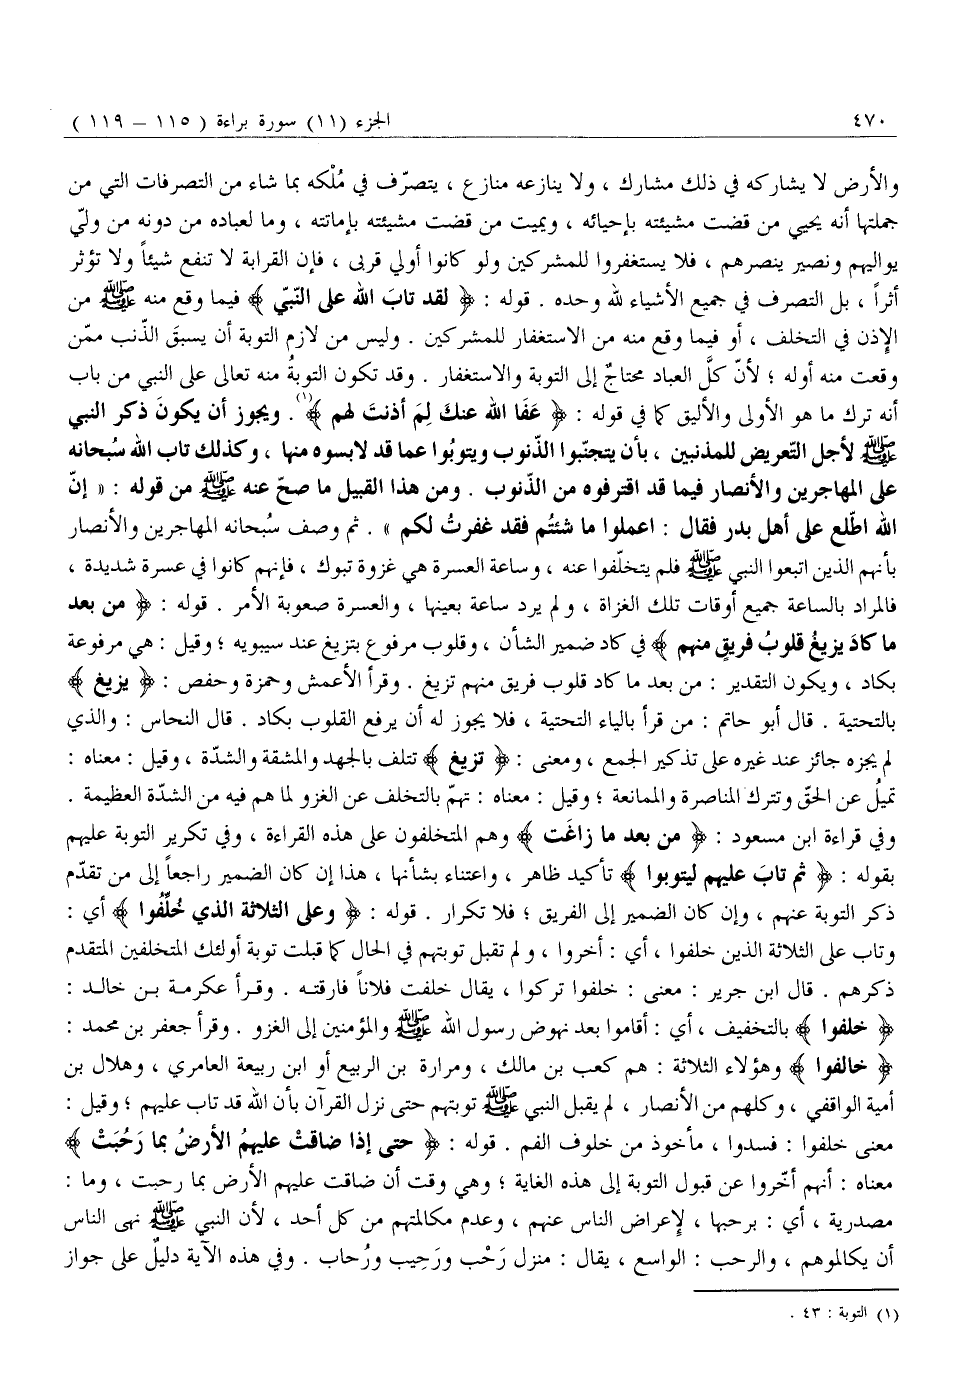 ٤٧٠ الجزء (١١) سورة براءة ( ١١٥ – ١١٩ )
والأرض لا يشاركه في ذلك مشارك ، ولا ينازعه منازع ، يتصرّف في مُلْكه بما شاء من التصرفات التي من
جملتها أنه يحيي من قضت مشيئته بإحيائه ، ويميت من قضت مشيئته بإماتته ، وما لعباده من دونه من وليّ
يواليهم ونصير ينصرهم ، فلا يستغفروا للمشركين ولو كانوا أولي قربى ، فإن القرابة لا تنفع شيئاً ولا تؤثر
أثراً ، بل التصرف في جميع الأشياء لله وحده . قوله : ﴿ لقد تابَ الله على النّبيّ ﴾ فيما وقع منه ﷺ من
الإذن في التخلف ، أو فيما وقع منه من الاستغفار للمشركين . وليس من لازم التوبة أن يسبقَ الذّنب ممّن
وقعت منه أوله ؛ لأنّ كلَّ العباد محتاجٌ إلى التوبة والاستغفار . وقد تكون التوبةُ منه تعالى على النبي من باب
أنه ترك ما هو الأولى والأليق كما في قوله : ﴿ عَفَا الله عنكَ لِمَ أذنتَ لهم ﴾(١) . ويجوز أن يكونَ ذكر النبي
ﷺ لأجل التّعريض للمذنبين ، بأن يتجنّبوا الذّنوب ويتوبُوا عما قد لابسوه منها ، وكذلك تاب الله سُبحانه
على المهاجرين والأنصار فيما قد اقترفوه من الذّنوب . ومن هذا القبيل ما صحّ عنه ﷺ من قوله : « إنّ
الله اطّلع على أهل بدر فقال : اعملوا ما شئتُم فقد غفرتُ لكم » . ثم وصف سُبحانه المهاجرين والأنصار
بأنهم الذين اتبعوا النبي ﷺ فلم يتخلّفوا عنه ، وساعة العسرة هي غزوة تبوك ، فإنهم كانوا في عسرة شديدة ،
فالمراد بالساعة جميع أوقات تلك الغزاة ، ولم يرد ساعة بعينها ، والعسرة صعوبة الأمر . قوله : ﴿ من بعد
ما كادَ يزيغُ قلوبُ فريقٍ منهم ﴾ في كاد ضمير الشأن ، وقلوب مرفوع بتزيغ عند سيبويه ؛ وقيل : هي مرفوعة
بكاد ، ويكون التقدير : من بعد ما كاد قلوب فريق منهم تزيغ . وقرأ الأعمش وحمزة وحفص : ﴿ يزيغ ﴾
بالتحتية . قال أبو حاتم : من قرأ بالياء التحتية ، فلا يجوز له أن يرفع القلوب بكاد . قال النحاس : والذي
لم يجزه جائز عند غيره على تذكير الجمع ، ومعنى : ﴿ تزيغ ﴾ تتلف بالجهد والمشقة والشدّة ، وقيل : معناه :
تميلُ عن الحقّ وتترك المناصرة والممانعة ؛ وقيل : معناه : تهمّ بالتخلف عن الغزو لما هم فيه من الشدّة العظيمة .
وفي قراءة ابن مسعود : ﴿ من بعد ما زاغَت ﴾ وهم المتخلفون على هذه القراءة ، وفي تكرير التوبة عليهم
بقوله : ﴿ ثم تابَ عليهم ليتوبوا ﴾ تأكيد ظاهر ، واعتناء بشأنها ، هذا إن كان الضمير راجعاً إلى من تقدّم
ذكر التوبة عنهم ، وإن كان الضمير إلى الفريق ؛ فلا تكرار . قوله : ﴿ وعلى الثلاثة الذي خُلِّفُوا ﴾ أي :
وتاب على الثلاثة الذين خلفوا ، أي : أخروا ، ولم تقبل توبتهم في الحال كما قبلت توبة أولئك المتخلفين المتقدم
ذكرهم . قال ابن جرير : معنى : خلفوا تركوا ، يقال خلفت فلاناً فارقته . وقرأ عكرمة بن خالد :
﴿ خلفوا ﴾ بالتخفيف ، أي : أقاموا بعد نهوض رسول الله ﷺ والمؤمنين إلى الغزو . وقرأ جعفر بن محمد :
﴿ خالفوا ﴾ وهؤلاء الثلاثة : هم كعب بن مالك ، ومرارة بن الربيع أو ابن ربيعة العامري ، وهلال بن
أمية الواقفي ، وكلهم من الأنصار ، لم يقبل النبي ﷺ توبتهم حتى نزل القرآن بأن الله قد تاب عليهم ؛ وقيل :
معنى خلفوا : فسدوا ، مأخوذ من خلوف الفم . قوله : ﴿ حتى إذا ضاقتْ عليهمُ الأرضُ بما رَحُبَتْ ﴾
معناه : أنهم أخّروا عن قبول التوبة إلى هذه الغاية ؛ وهي وقت أن ضاقت عليهم الأرض بما رحبت ، وما :
مصدرية ، أي : برحبها ، لإعراض الناس عنهم ، وعدم مكالمتهم من كل أحد ، لأن النبي ﷺ نهى الناس
أن يكالموهم ، والرحب : الواسع ، يقال : منزل رَحْب ورَحِيب ورُحاب . وفي هذه الآية دليلٌ على جواز
(١) التوبة : ٤٣ .